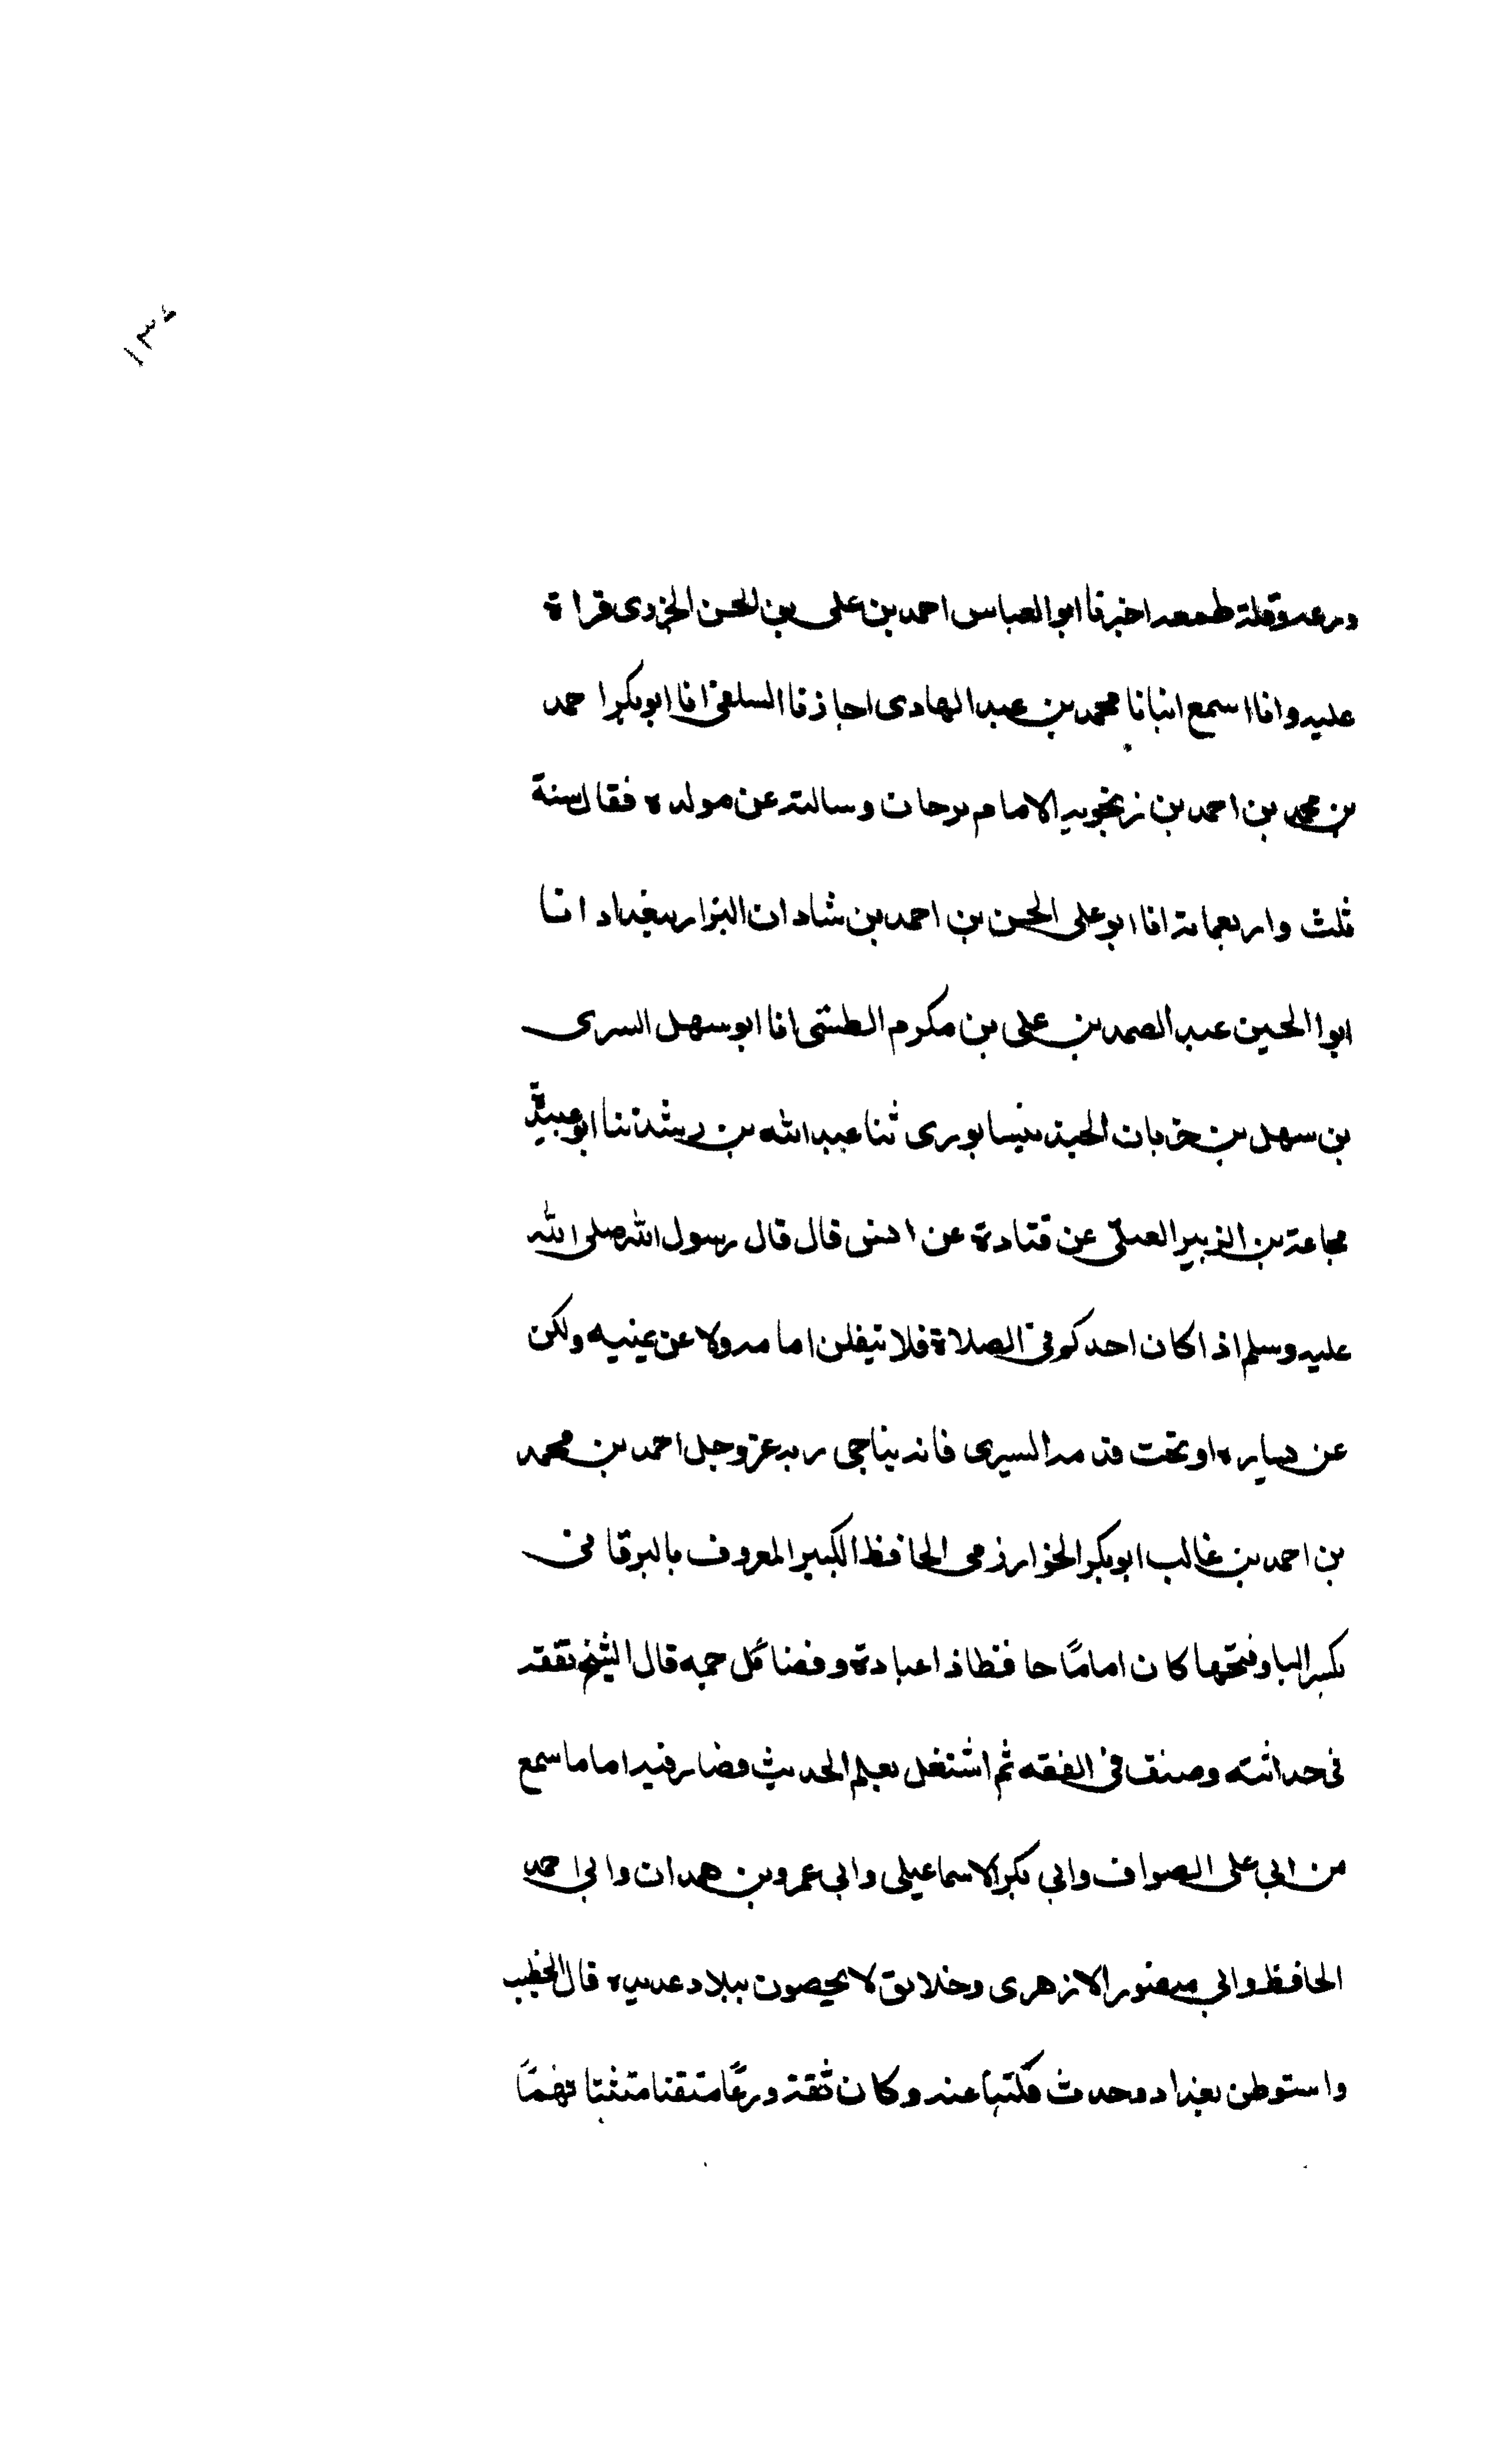 ١٣٤
وورعه وقلة طمعه اخبرنا ابو العباس احمد بن على بن الحسن الجزرى قراة
عليه وانا اسمع انبانا محمد بن عبد الهادى اجازة انا السلفى انا ابو بكر احمد
بن محمد بن احمد بن زنجويه الامام بزنجان وسالته عن مولده فقال سنة
ثلث واربعماية انا ابو على الحسن بن احمد بن شادان البزار ببغداد انا
ابوا الحسين عبد الصمد بن على بن مكرم الطستى انا ابو سهل السرى
بن سهل بن خربان الجند نيسابورى ثنا عبد الله بن رشد ثنا ابو عبيدة
مجاعة بن الزبير العتكى عن قتادة عن انس قال قال رسول الله صلى الله
عليه وسلم اذا كان احدكم فى الصلاة فلا يتفلن امامه ولا عن يمينه ولكن
عن يساره او تحت قدمه اليسرى فانه يناجى ربه عز وجل احمد بن محمد
بن احمد بن غالب ابو بكر الخوارزمى الحافظ الكبير المعروف بالبرقانى
بكسر البا وفتحها كان اماماً حافظا ذا عبادة وفضائل جمه قال الشيخ تفقه
فى حداثته وصنف فى الفقه ثم اشتغل بعلم الحديث فصار فيه اماما سمع
من ابى على الصواف وابى بكر الاسماعيلى وابى عمرو بن حمدان وابى احمد
الحافظ وابى منصور الازهرى وخلايق لا يحصون ببلاد عديده قال الخطيب
واستوطن بغداد وحدث فكتبنا عنه وكان ثقة ورعًا متقنا متثبتا فهمًا